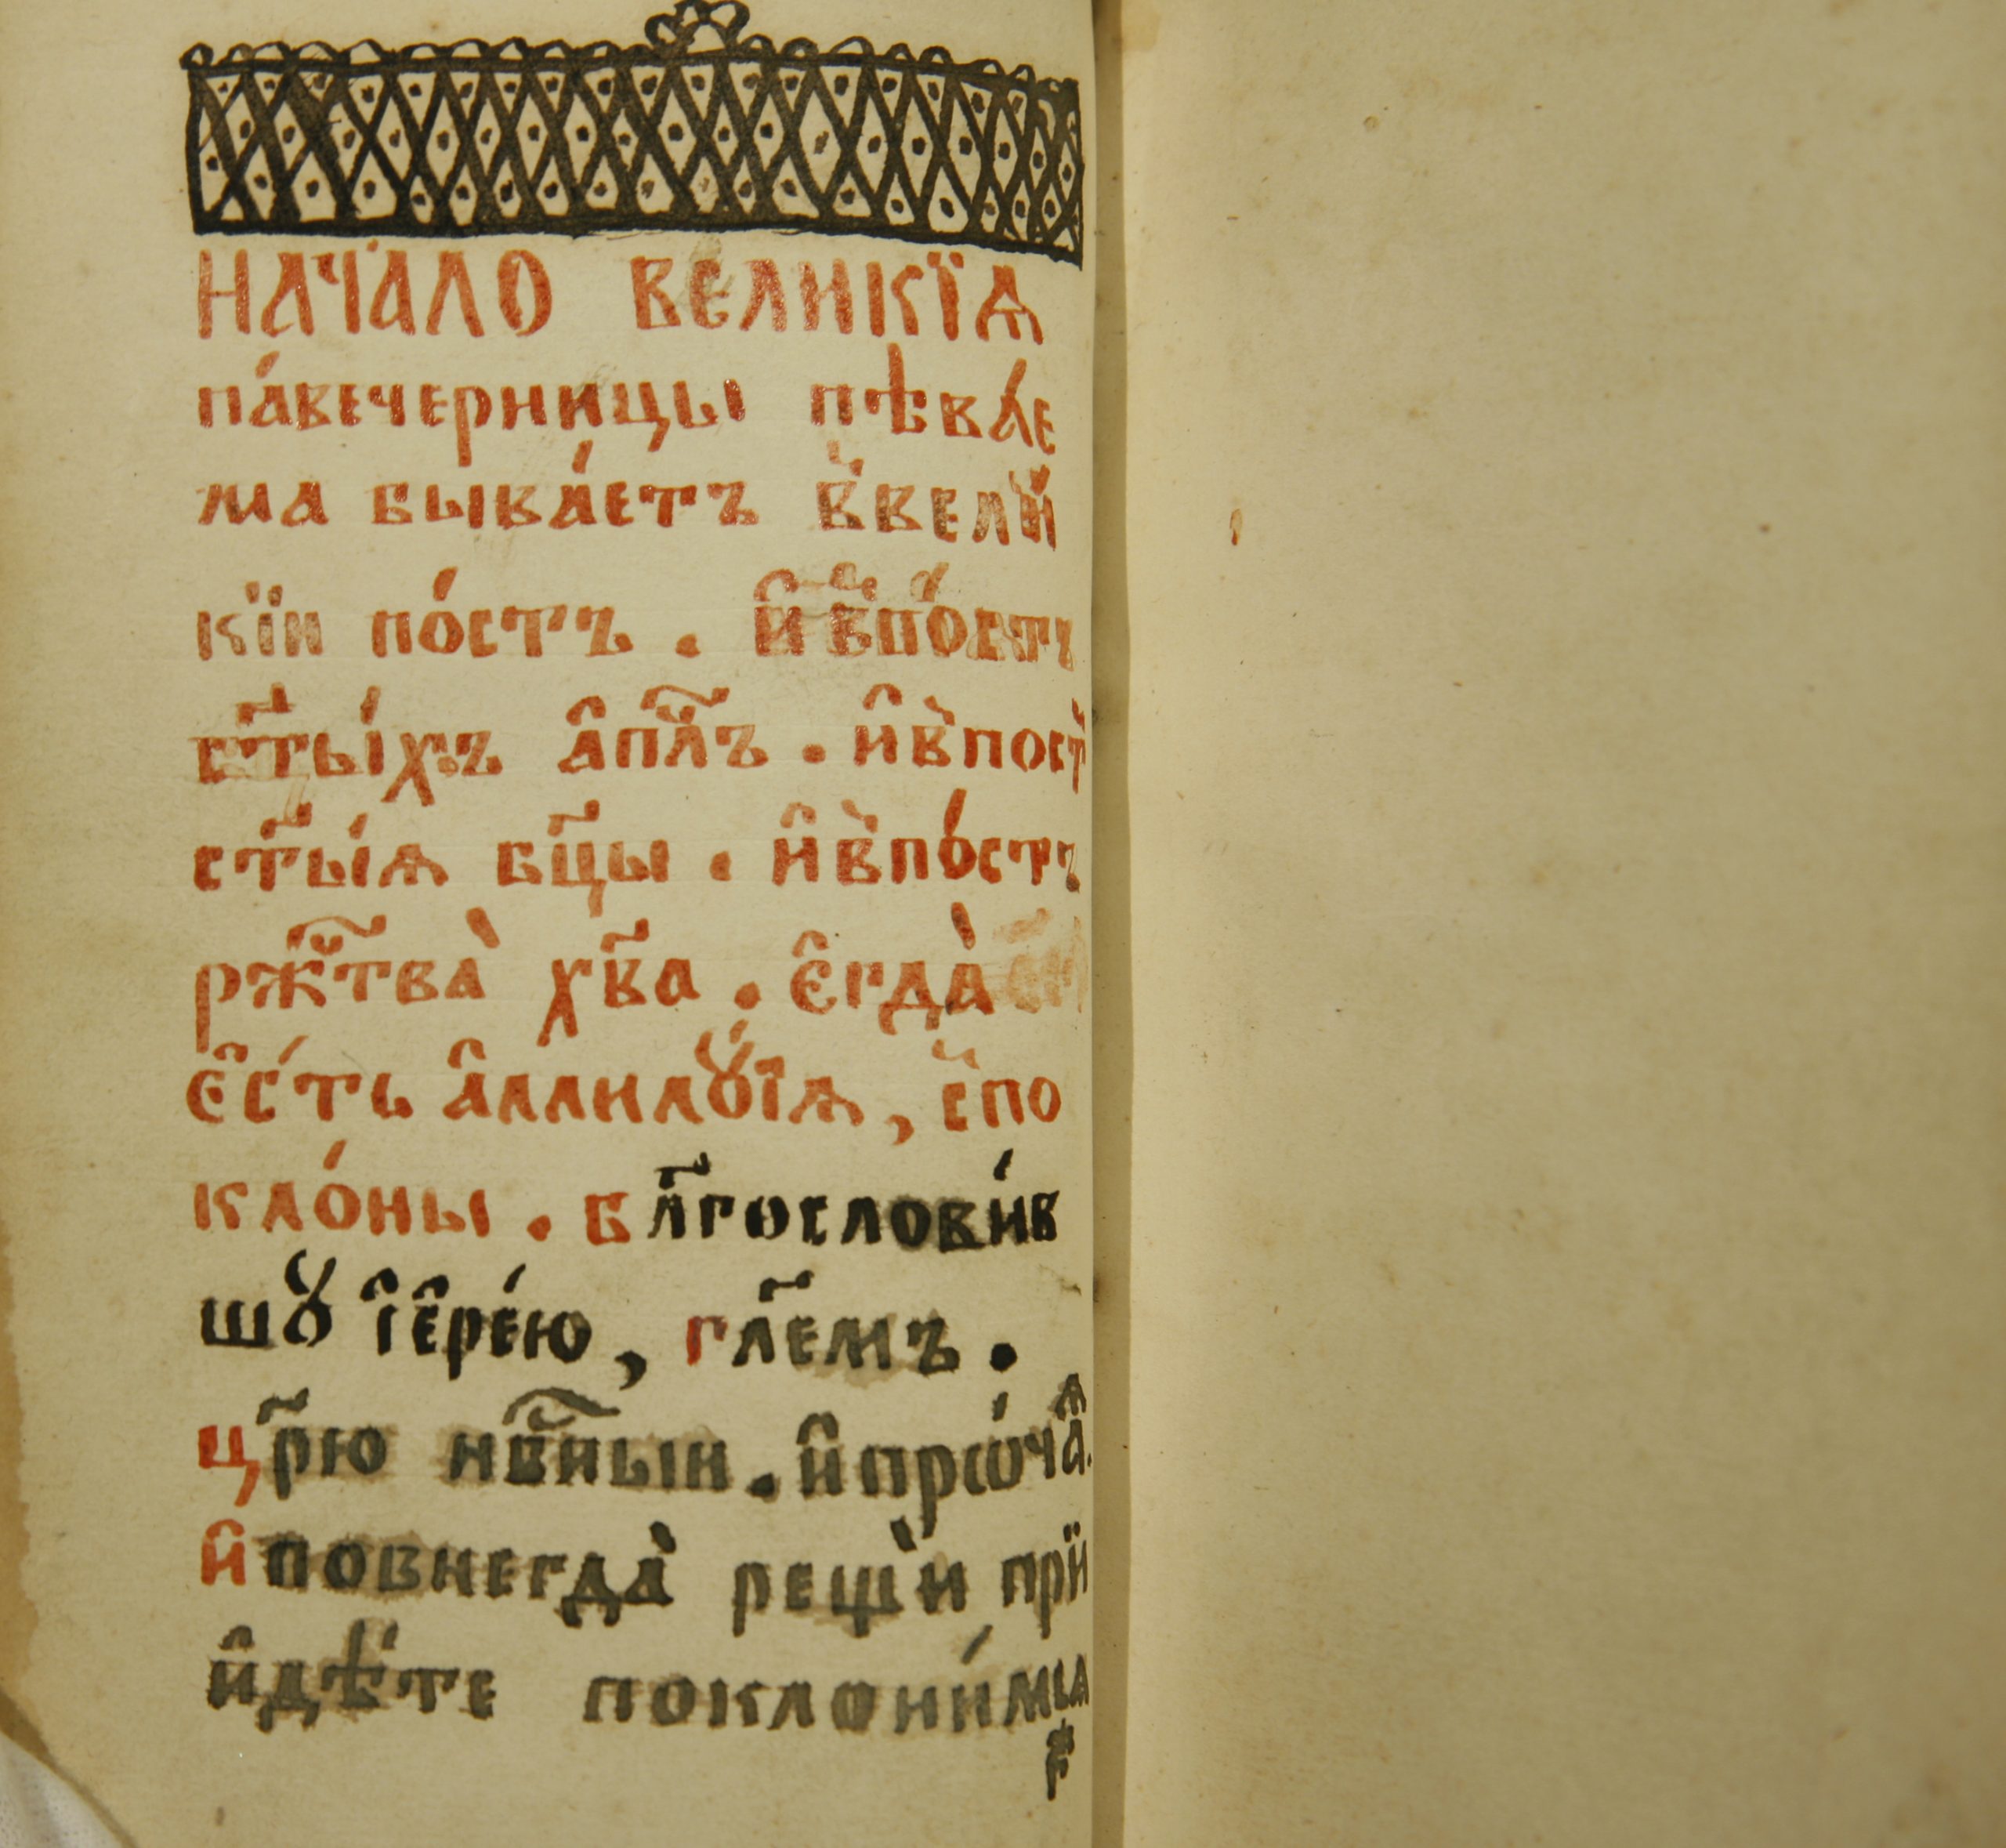 НАЧА́ЛО ВЕЛИКЇѦ
па́вечерни́цы пѣва́е
ма быва́етъ в̾вели́
кїи по́стъ . и҆ в̾по́стъ
ст҃ы́хъ а҆пⷭ҇лъ . и҆в̾пост
ст҃ы́ѧ бц҃ы . и҆в̾по́стъ
ржⷭ҇тва̀ хв҃а . є҆гда̀
є҆́сть а҆ллилꙋ́їѧ , с̾по
кло́ны . бл҃гослови́в
шꙋ і҆ере́ю , гл҃емъ .
цр҃ю нбⷭ҇ныи . и҆ прѡ́чаѧ .
и҆ повнегда̀ рещѝ прї
и҆дѣ́те поклони́мсѧ